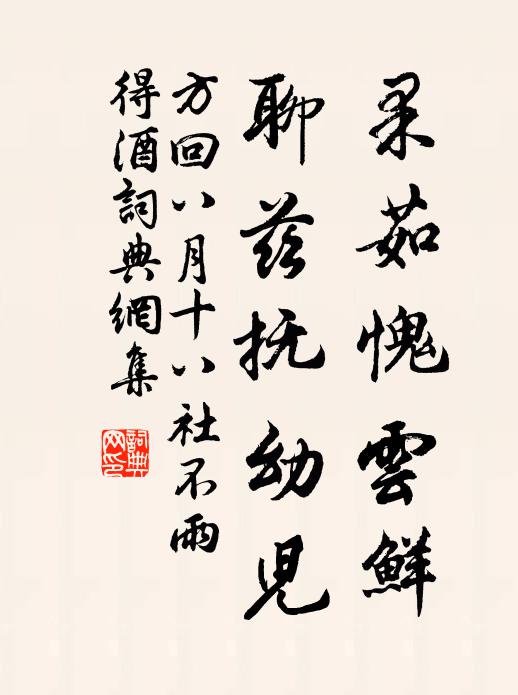 果茹愧雲鮮
聊兹抚幼児
方回八月十八社不雨
得酒詞典網集
詞典网印